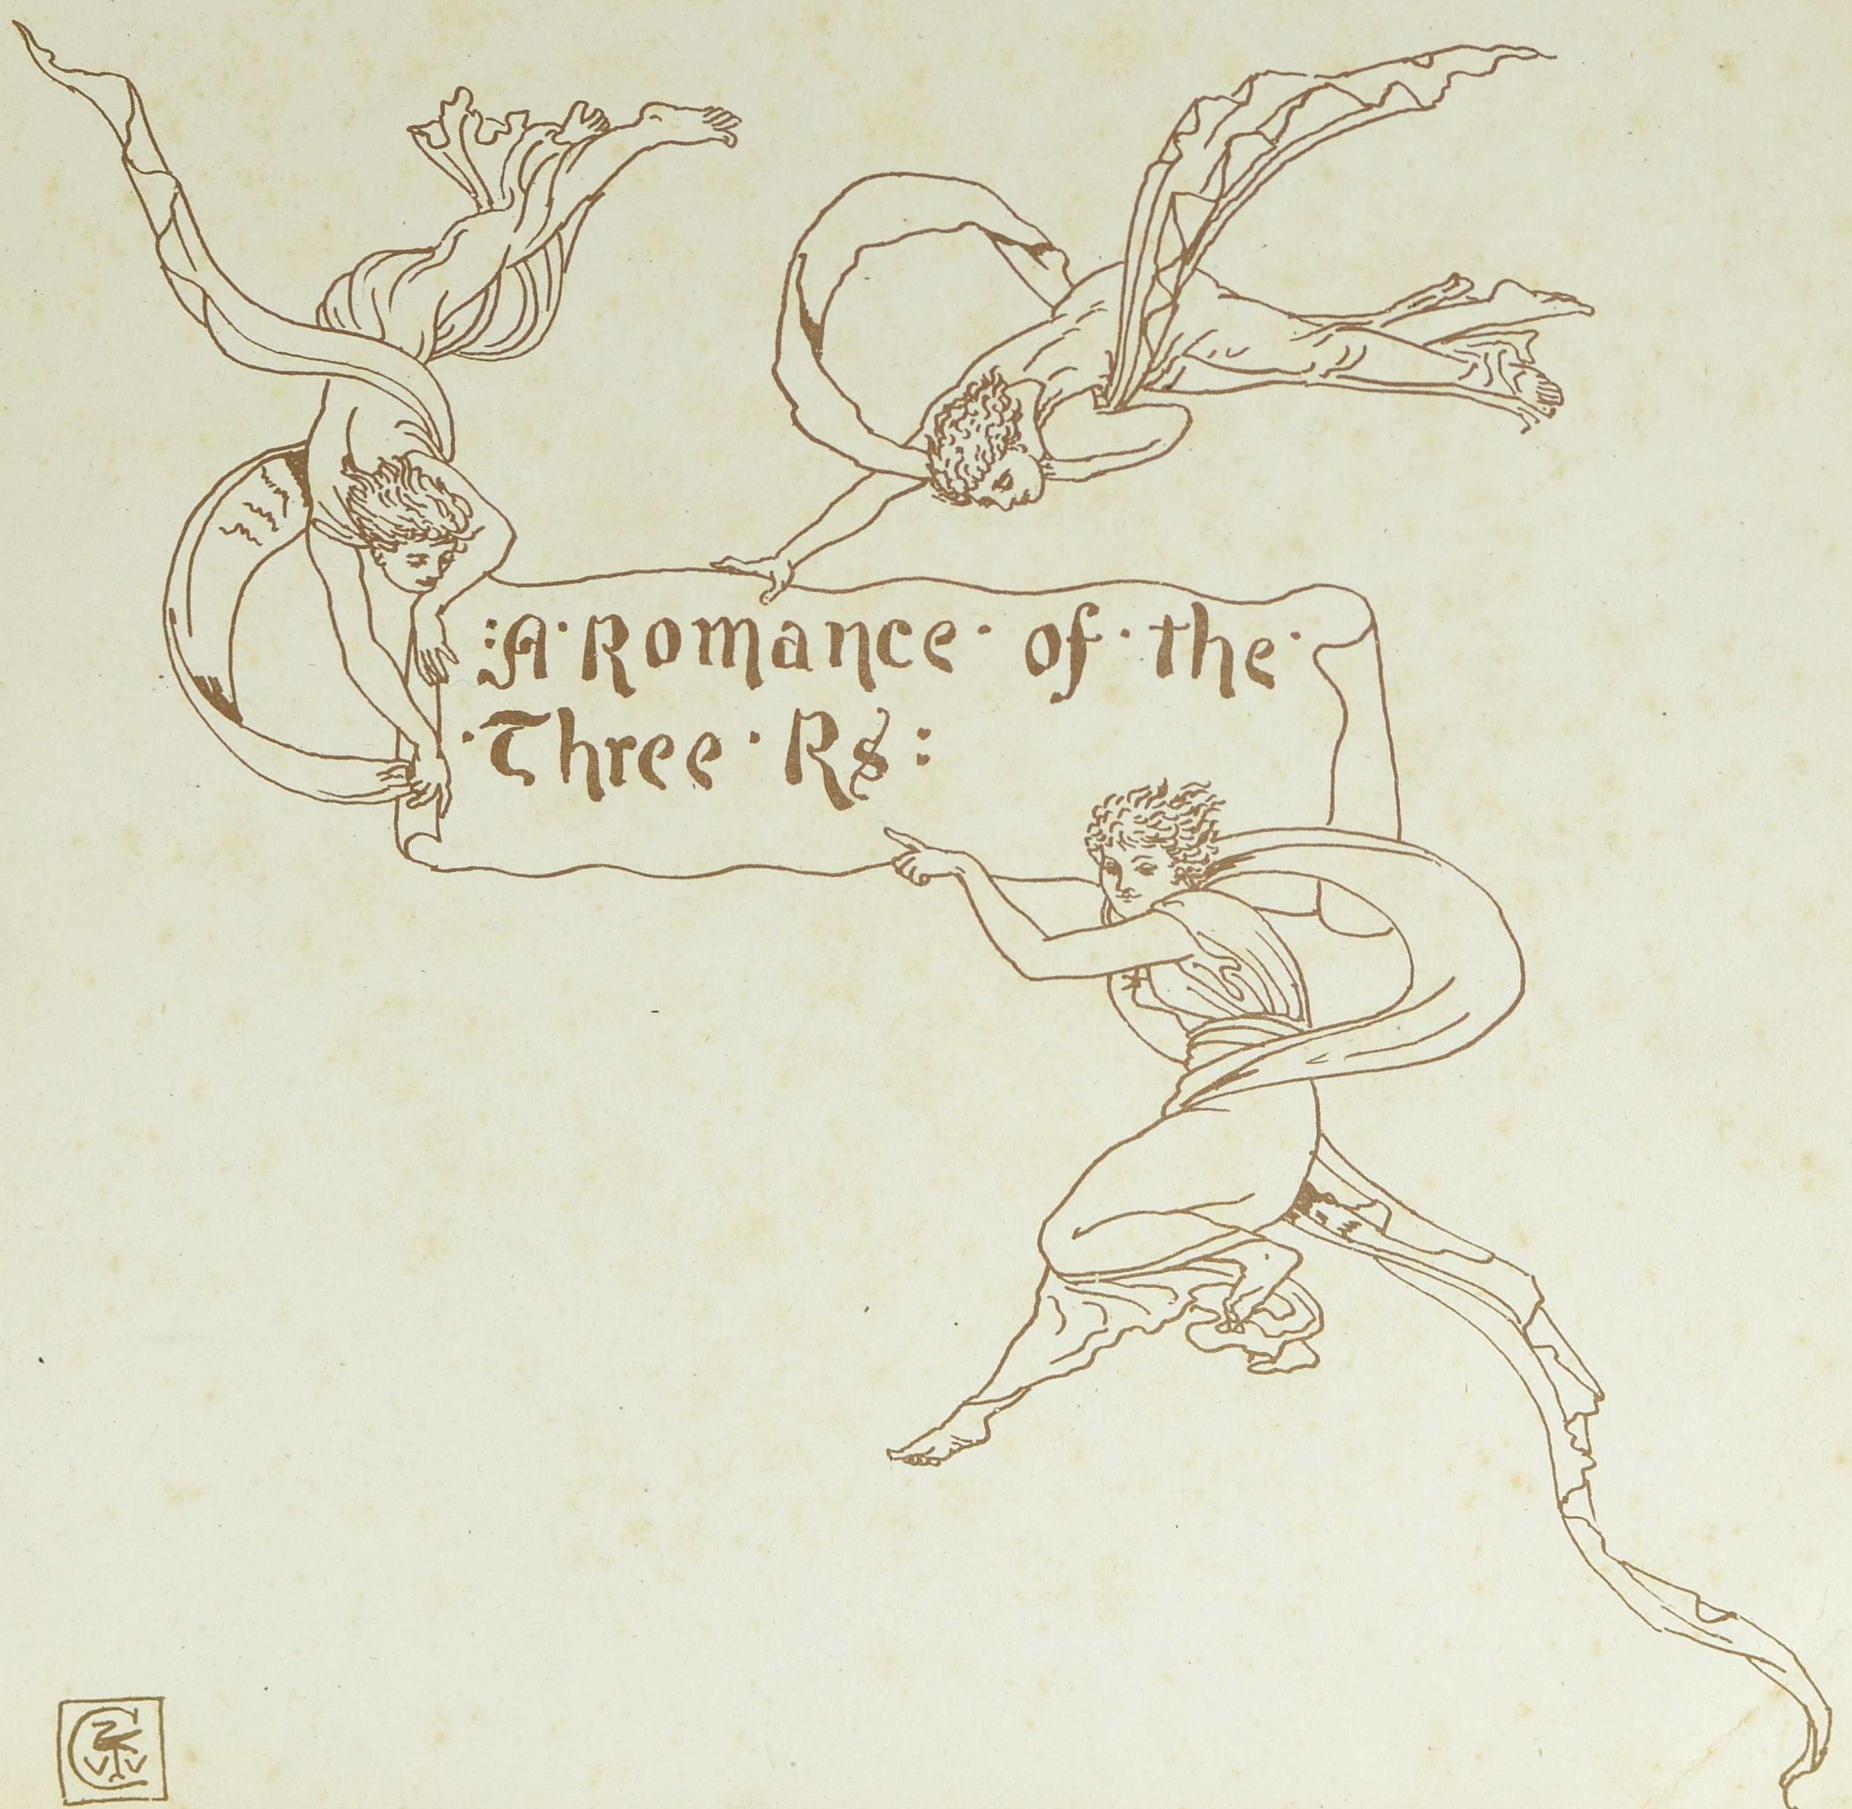 :A· Romance· of· the·
·Three· Rs: